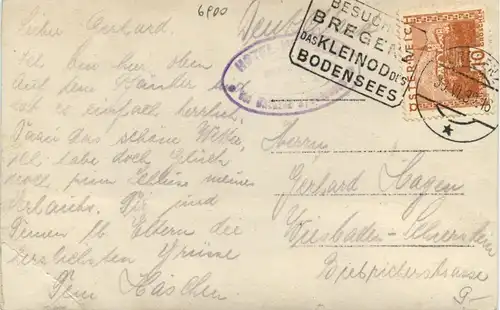 6900
Lieber Gerhard.
Ich bin hier oben
auf dem Pfänder
ist es einfach herrlich.
das schöne Wetter,
habe doch Glück
noch zum Schluss meines
Urlaubs. Dir und
Deinen lb. Eltern die
herzlichsten Grüsse
Dein Häschen.
HOTEL
BESUCHT
BREGENZ
DAS KLEINOD DES
BODENSEES
ÖSTERREICH
Herrn
Gerhard Hagen
Wiesbaden-Schierstein
Biebricherstrasse
9-